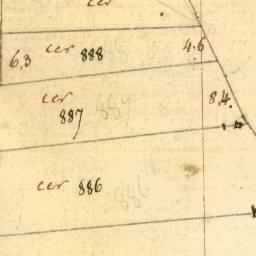 cer
6.3 cer 888 4.6
cer 8.4.
887
cer 886